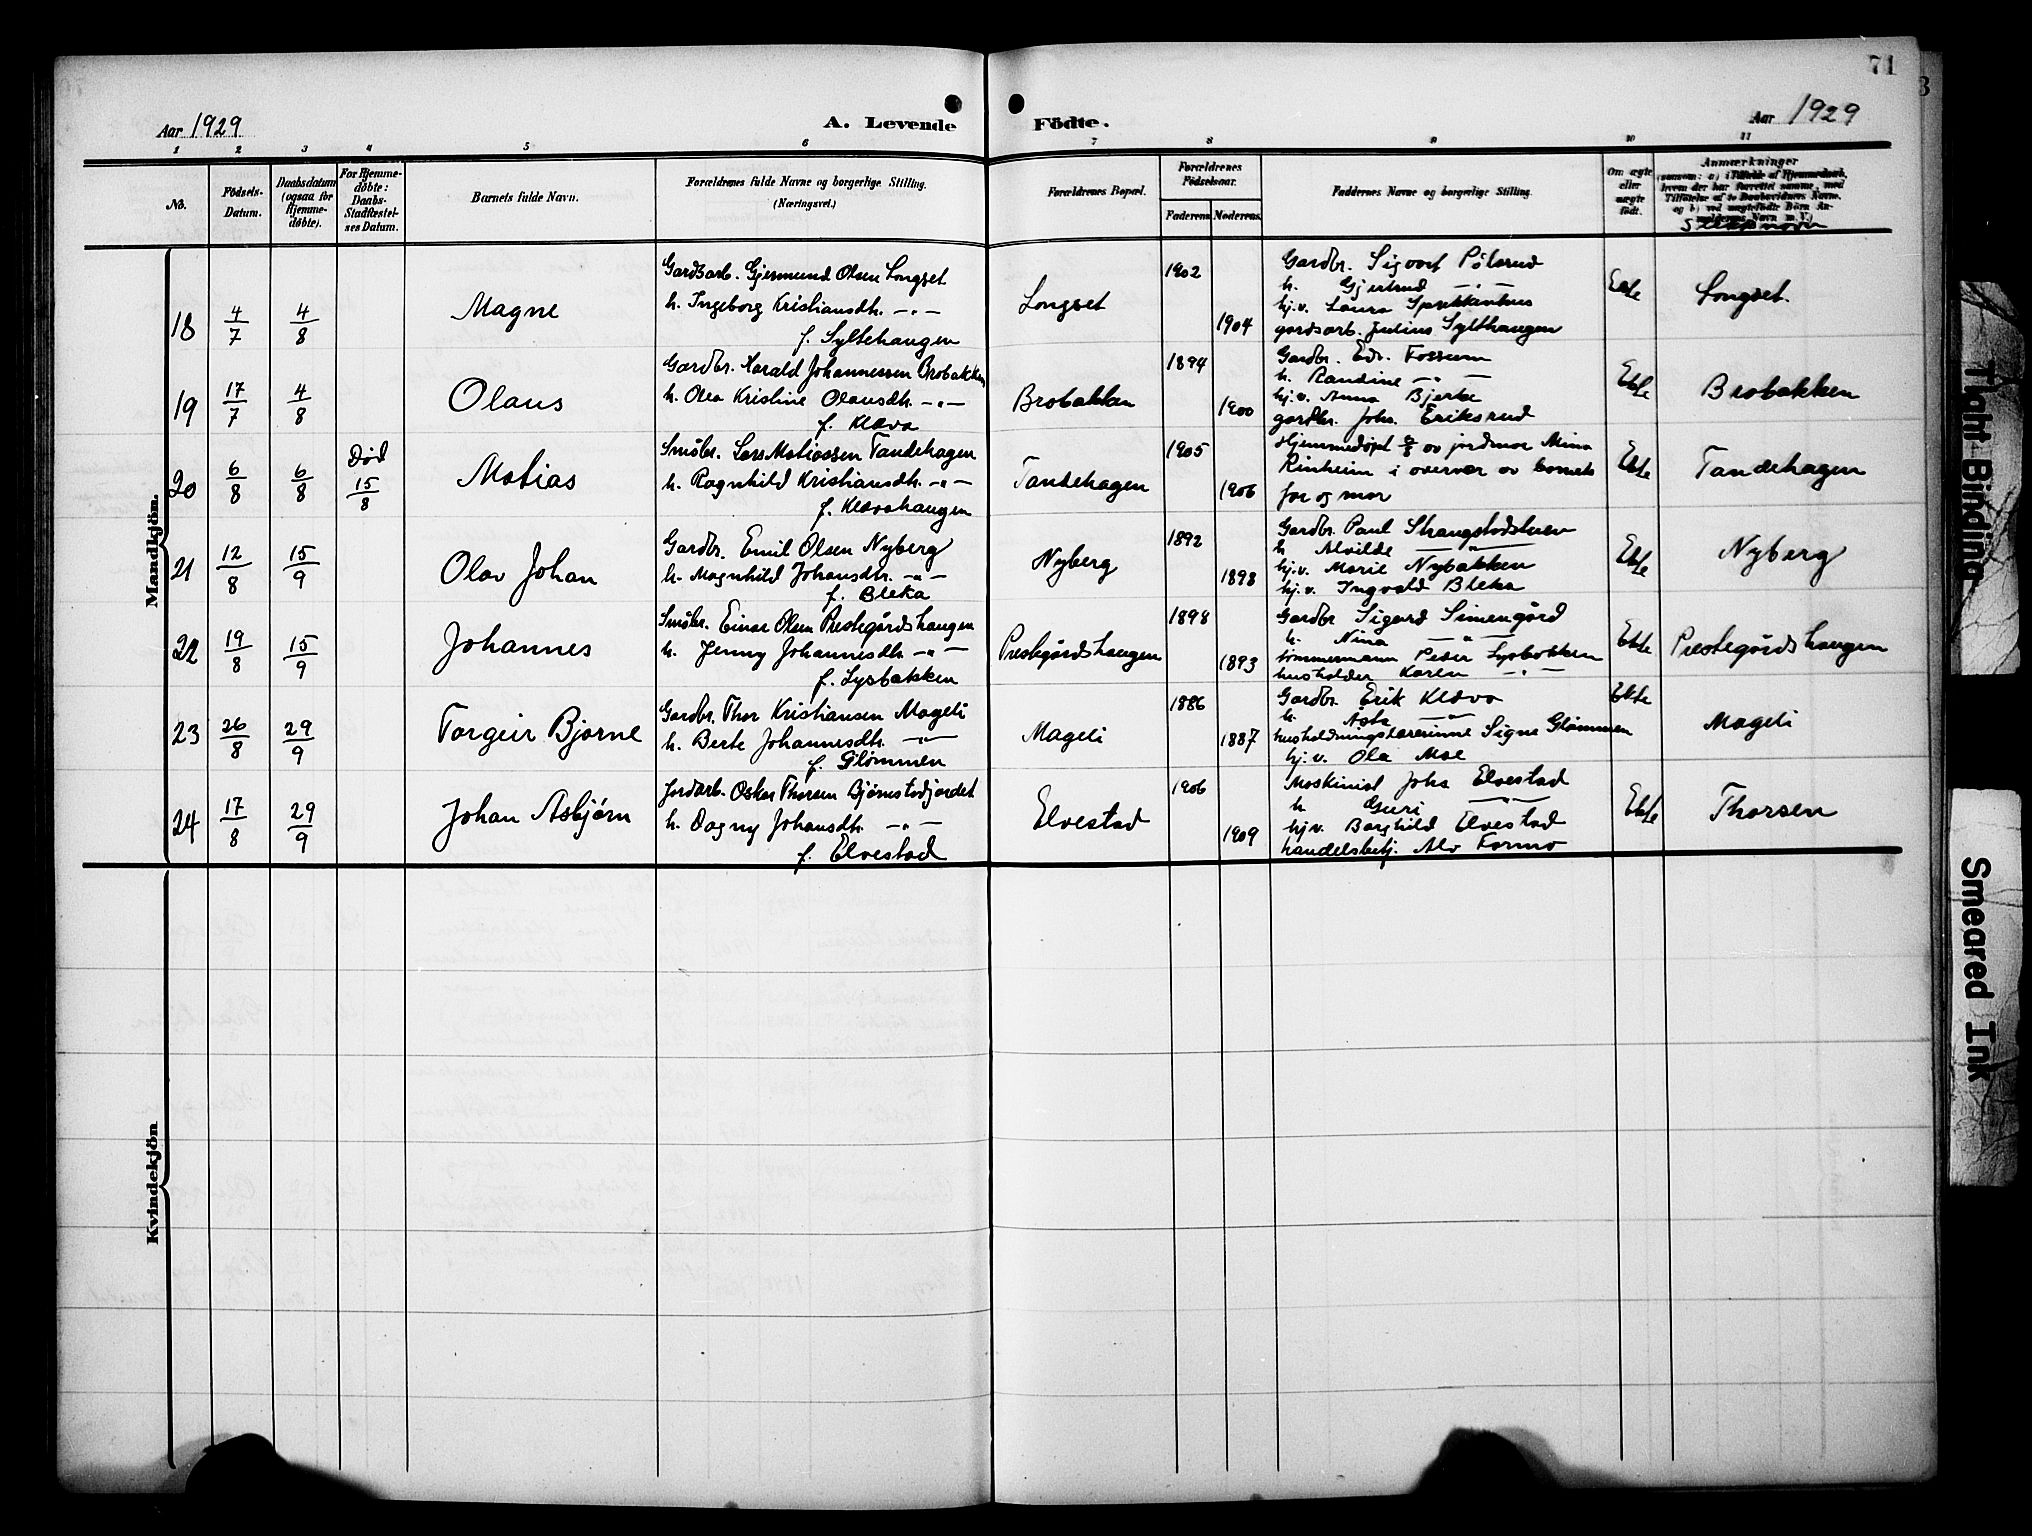 71
Aar 1929
A. Levende Födte.
Aar 1929
1 2 3 4 5 6 7 8 9 10 11
No.
Födsels-Datum.
Daabsdatum (ogsaa for Hjemme-døbte).
For Hjemme-døbte: Daabs-Stadfæstel-ses Datum.
Barnets fulde Navn.
Forældrenes fulde Navne og borgerlige Stilling. (Næringsvei.)
Forældrenes Bopæl.
Forældrenes Födselsaar.
Faderens Moderens
Faddernes Navne og borgerlige Stilling.
Om ægte eller uægte födt.
Anmærkninger
Mandkjön.
18 4/7 4/8 Magne
Gardsarb. Gjermund Olsen Longset
h. Ingeborg Kristiansdh. -"-
f. Syltehaugen
Longset 1902 1904
Gardbr. Sigvart
h. Gjertrud -"-
hj.v. Laura
gardsarb. Julius Sylthaugen
Ekte Longset.
19 17/7 4/8 Olaus
Gardbr. Harald Johannessen Brobakken
h. Olea Kristine Olausdh. -"-
f. Kleva
Brobakken 1894 1900
Gardbr. Edv. Fossum
h. Randine -"-
hj.v. Anna Bjerke
gardbr. Johs. Eriksrud
Ekte Brobakken
20 6/8 6/8 Død 15/8 Matias
Småbr. Lars Matiassen Tandehagen
h. Ragnhild Kristiansdh. -"-
f. Klevahaugen
Tandehagen 1905 1906
Hjemmedøpt 6/8 av jordmor Mina
Rinheim i overvær av barnets
far og mor
Ekte Tandehagen
21 12/8 15/9 Olav Johan
Gardbr. Emil Olsen Nyberg
h. Magnhild Johansdtr. -"-
f. Bleka
Nyberg 1892 1898
Gardbr. Paul
h. Alvilde -"-
hj.v. Marie Nybakken
hj.v. Ingvald Bleka
Ekte Nyberg
22 19/8 15/9 Johannes
Småbr. Einar Olsen Prestegårdshaugen
h. Jenny Johannesdh. -"-
f. Lysbakken
Prestegårdshaugen 1898 1893
Gardbr Sigurd Simengård
h. Nina -"-
tømmermann Peder Lysbakken
husholder Karen -"-
Ekte Prestegårdshaugen
23 26/8 29/9 Torgeir Bjarne
Gardbr. Thor Kristiansen Mageli
h. Berte Johannesdh. -"-
f. Glømmen
Mageli 1886 1887
Gardbr. Erik Kleva
h. Åsta -"-
husholdningslærerinne Signe Glømmen
hj.v. Ola Moe
Ekte Mageli
24 17/8 29/9 Johan Asbjørn
Jordarb. Oskar Thorsen Bjørnstadjordet
h. Dagny Johansdh. -"-
f. Elvestad
Elvestad 1906 1909
Maskinist Johs Elvestad
h Guri -"-
hj.v. Borghild Elvestad
handelsbetj. Alv Formo
Ekte Thorsen
Kvindekjön
Tight Binding
Smeared Ink